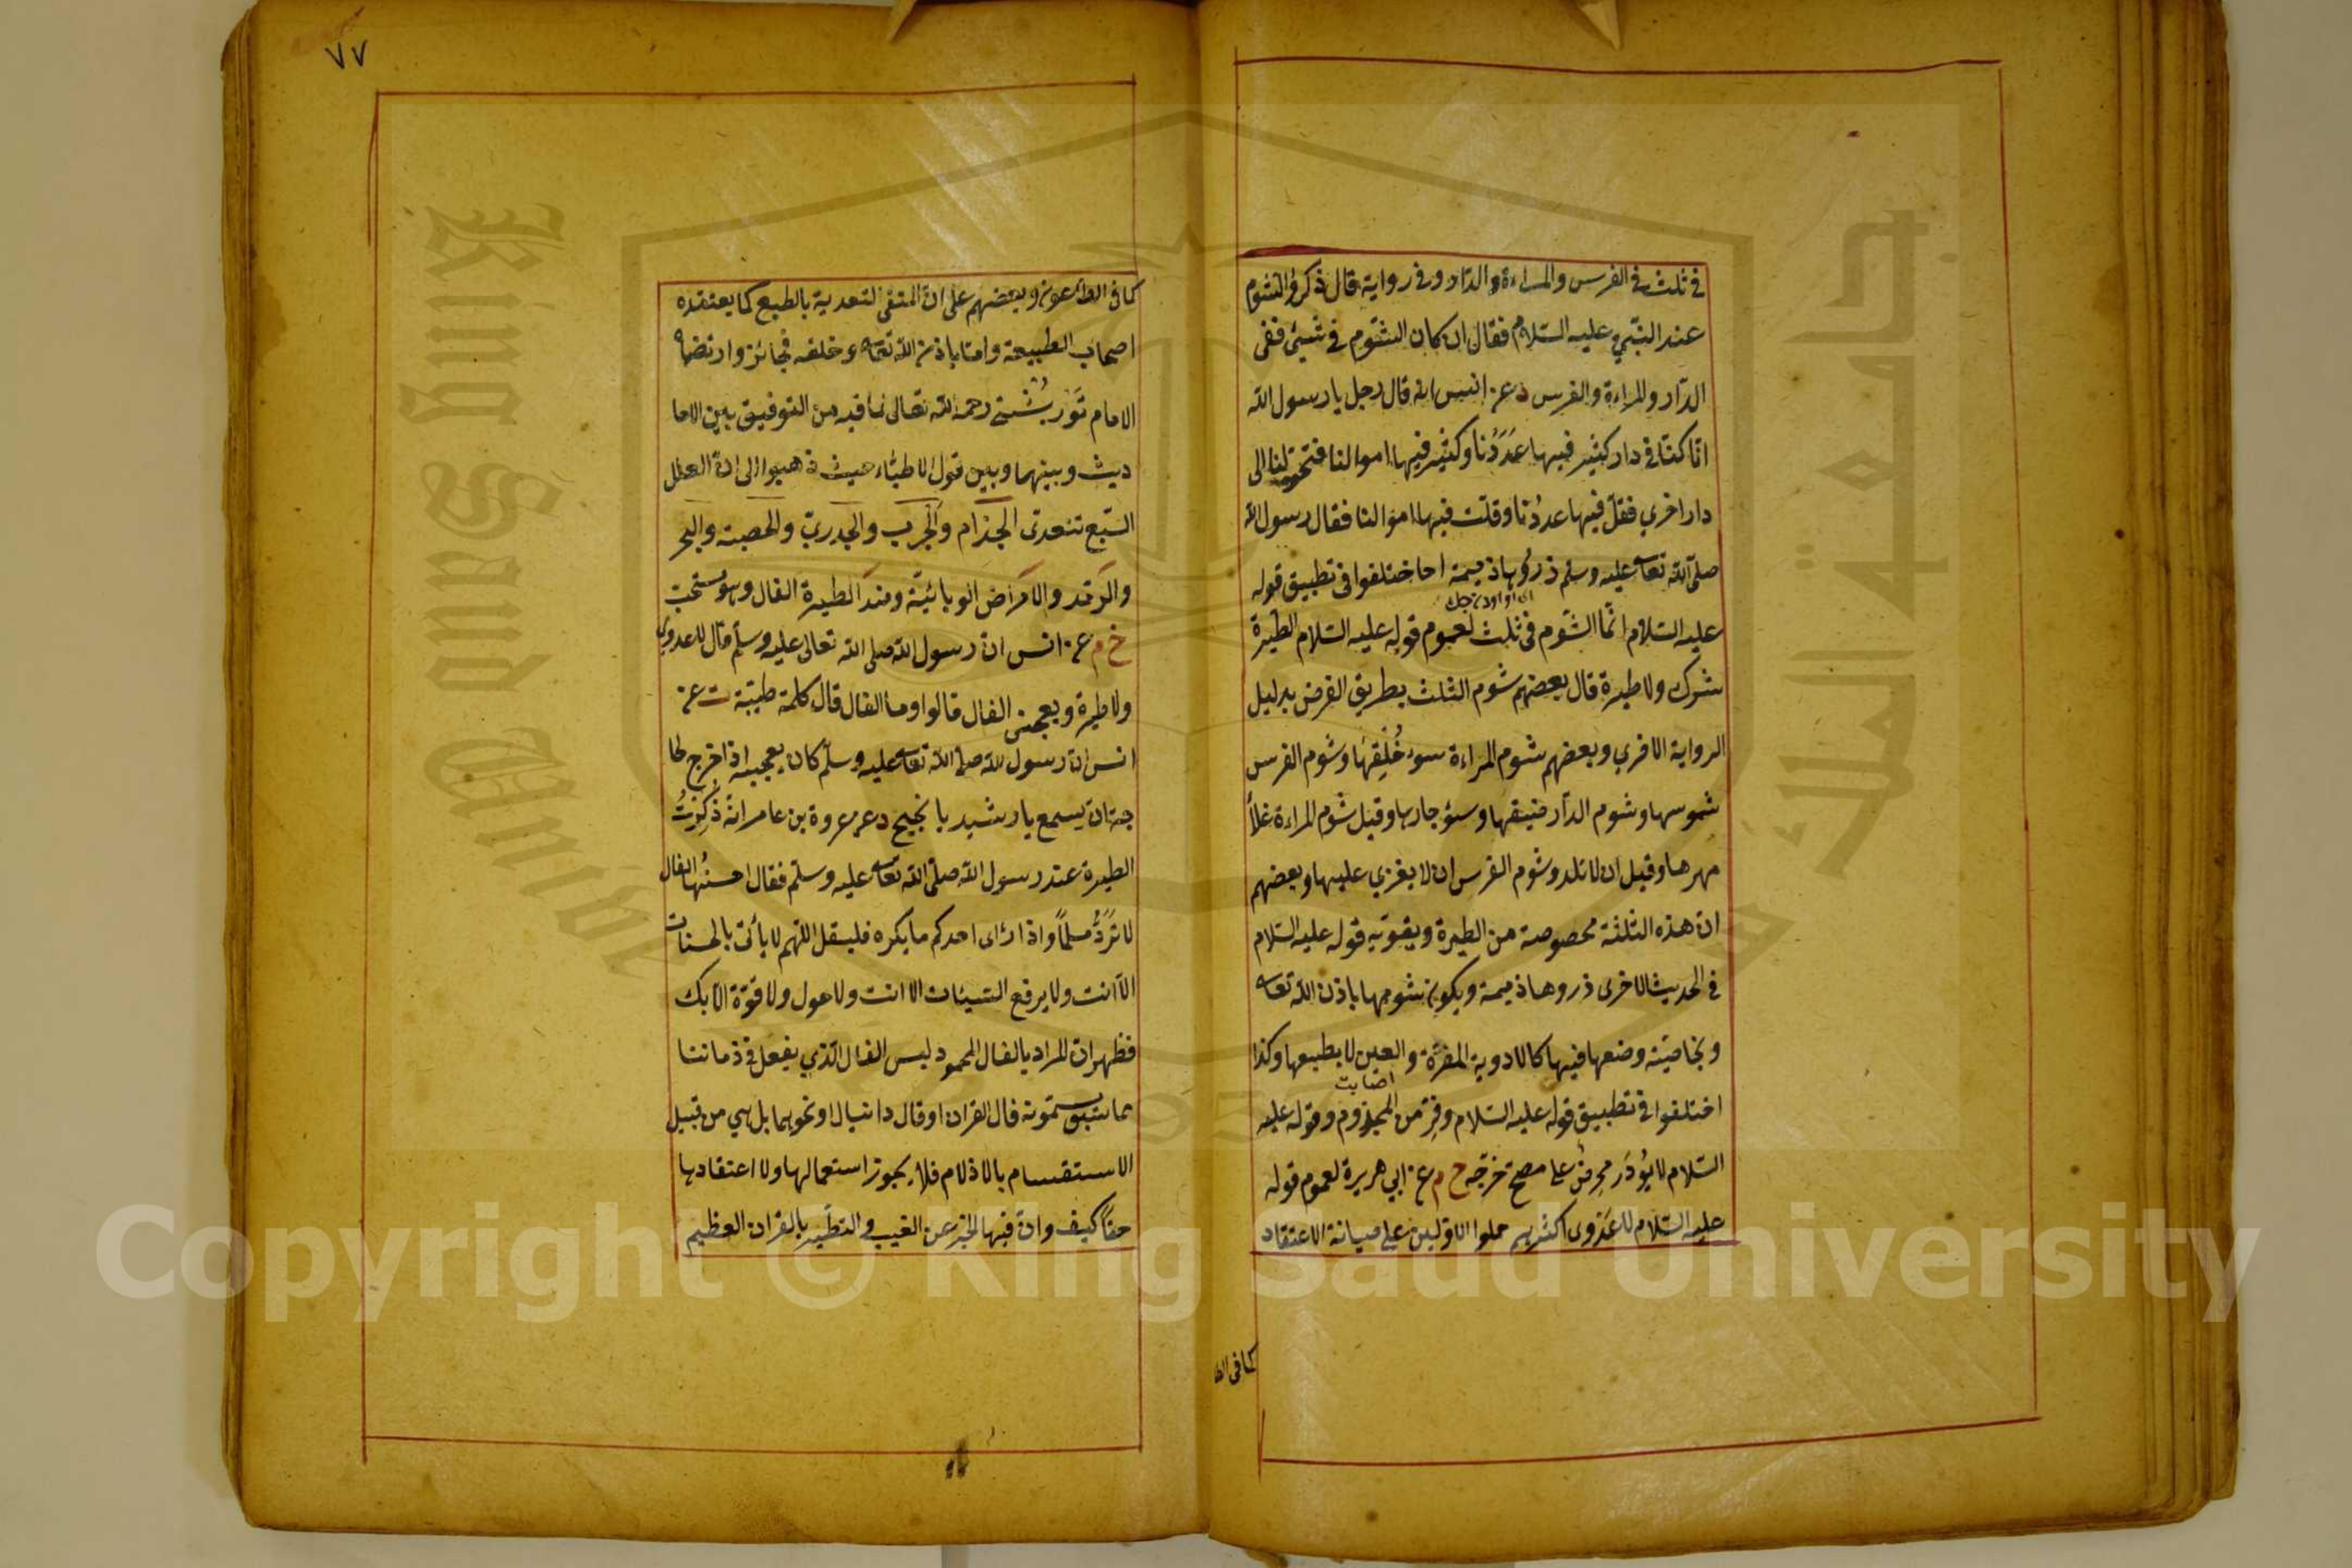 في ثلث في الفرس والمراءة والدار وفي رواية قال ذكروا الشوم
عند النبي عليه السلام فقال ان كان الشوم في شيئ ففي
الدار والمراءة والفرس د عن انس انه قال رجل يا رسول الله
انا كنا في دار كثير فيها عددنا وكثير فيها اموالنا فتحولنا الى
دار اخري فقل فيها عددنا وقلت فيها اموالنا فقال رسول الله
صلى الله تعا عليه وسلم ذروها ذميمة اختلفوا في تطبيق قوله
عليه السلام انما الشوم في ثلث لعموم قوله عليه السلام الطيرة
شرك ولا طيرة قال بعضهم شوم الثلث بطريق الفرض بدليل
الرواية الاخري وبعضهم شوم المراءة سوء خلقها وشوم الفرس
شموسها وشوم الدار ضيقها وسوء جارها وقيل شوم المراءة غلاء
مهرها وقيل ان لا تلد وشوم الفرس ان لا يغزي عليها وبعضهم
ان هذه الثلثة مخصوصة من الطيرة ويقويه قوله عليه السلام
في الحديث الاخرى ذروها ذميمة ويكون شومها باذن الله تعا
وبخاصية وضعها فيها كالادوية المضرة والعين لا بطبيعها وكذا
اصابت
اختلفوا في تطبيق قوله عليه السلام وفر من المجذوم وقوله عليه
السلام لا يورد ممرض على مصح خرجه خ م عن ابي هريرة لعموم قوله
عليه السلام لا عدوى اكثرهم حملوا الاولين على صيانة الاعتقاد
كما في الطا
٧٧
كما في الطاعون وبعضهم على ان المنفى التعدية بالطبع كما يعتقده
اصحاب الطبيعة واما باذن الله تعا وخلقه فجائز وارتضاه
الامام تورپشتي رحمه الله تعالى لما فيه من التوفيق بين الاحا
ديث وبينهما وبين قول الاطباء حيث ذهبوا الى ان العلل
السبع تتعدى الجذام والجرب والجدري والحصبة والبخر
والرمد والامراض الوبائية وضد الطيرة الفال وهو مستحب
خ م عن انس ان رسول الله صلى الله تعالى عليه وسلم قال لا عدوى
ولا طيرة ويعجبنى الفال قالوا وما الفال قال كلمة طيبة ت عن
انس ان رسول الله صلى الله تعا عليه وسلم كان يعجبه اذا خرج لحا
جة ان يسمع يا رشيد يا نجيح د عن عروة بن عامر انه ذكرت
الطيرة عند رسول الله صلى الله تعا عليه وسلم فقال احسنها الفال
لا ترد مسلما واذا رأى احدكم ما يكره فليقل اللهم لا يأتى بالحسنات
الا انت ولا يرفع السيئات الا انت ولا حول ولا قوة الا بك
فظهر ان المراد بالفال المحمود ليس الفال الذي يفعل في زماننا
مما يسمونه فال القران او فال دانيال او نحوهما بل هي من قبيل
الاستقسام بالازلام فلا يجوز استعمالها ولا اعتقادها
حقا كيف وان فيها الخبر عن الغيب والتطير بالقران العظيم
Copyright © King Saud University